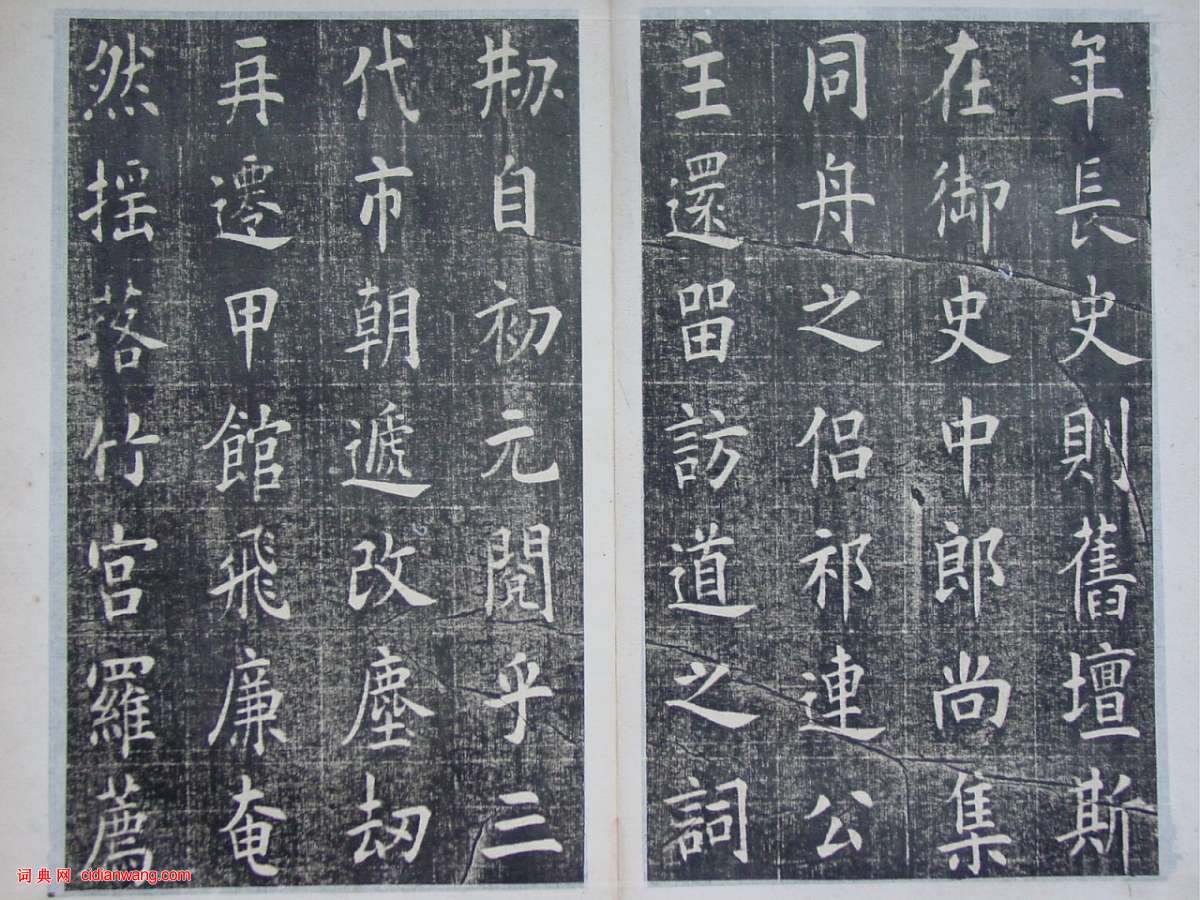 年長史則舊壇斯
在御史中郎尚集
同舟之侶祁連公
主還留訪道之詞
剏自初元閱乎三
代市朝遞改塵劫
再遷甲館飛廉奄
然揺落竹宮羅薦
词典网 cidianwang.com